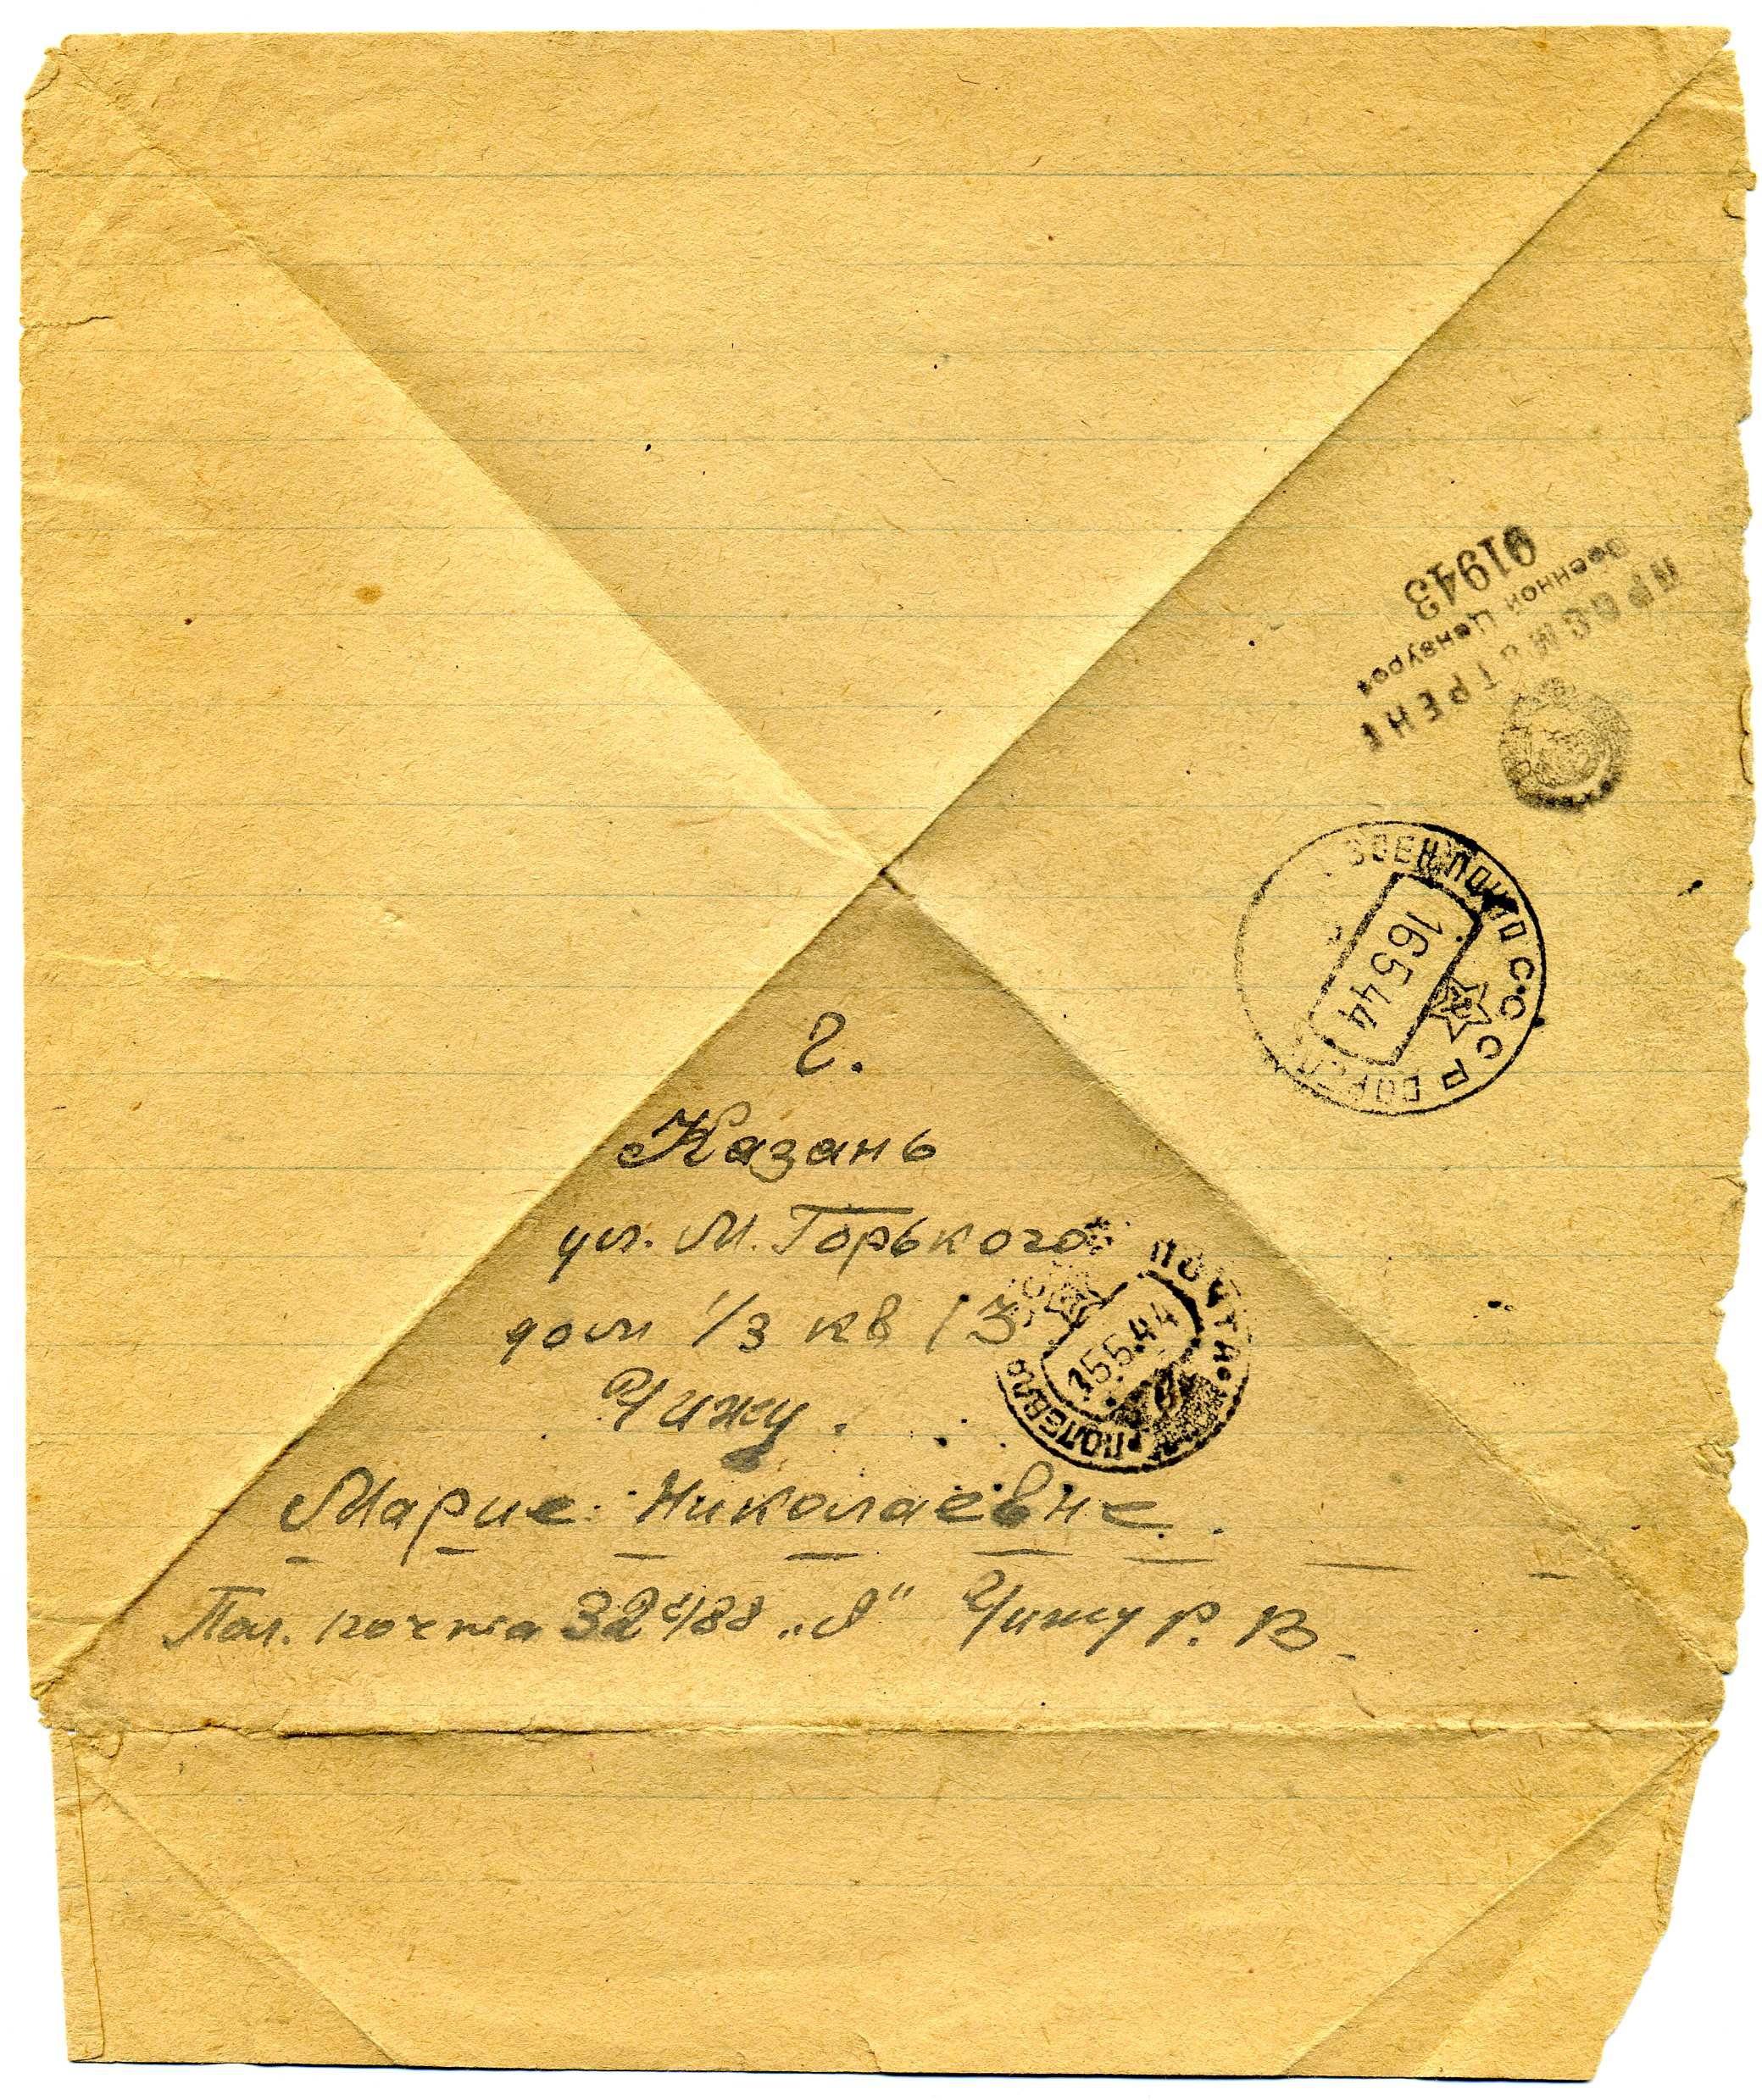 ПРОСМОТРЕНО
Военной Цензурой
01943
ВОЕН
СССР
16 5 44
г.
Казань
ул. М. Горького
дом 1/3 кв 13
Чижу.
Марие Николаевне.
ПОЛЕВАЯ ПОЧТА
15.5.44
Пол. почта 32488 „д" Чижу Р. В.